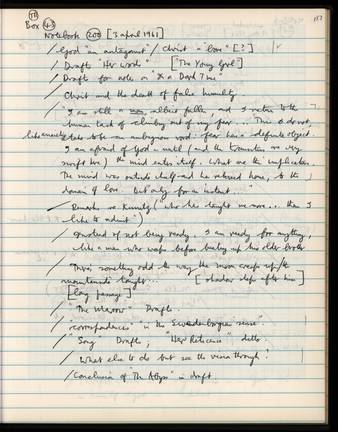 TR
Box 43
157
Notebook 200 [3 april 1961]
/ "God "an antagonist" / Christ a "love" [?]
/ Drafts "Her Words" ["The Young Girl"]
/ Drafts for note on "In a Dark Time"
/ Christ and the death of false humility.
/ "I am still a man, albeit fallen, and I return to the
human task of climbing out of my fear ... This is do not,
take to be an ambiguous word: fear has a definite object.
I am afraid of God's will (and the transitions are very
the mind enters itself. What are the implications.
The mind was outside itself and he returned home, to the
domain of love. But only for an instant ..."
/ Remark re Kunitz ("who has taught me more ... than I
like to admit")
/ Instead of not being ready, I am ready for anything,
like a man who weeps before his older brother
/ There's something odd the way the moon creeps up the
mountainside tonight... [ shadow after him ]
[long passage]
/ "The Marrow" Drafts.
/ "correspondences" "in the Swedenborgian sense"
/ "Song" Drafts; "Her Reticence" ditto
/ What else to do but see the vision through!
/ Conclusion of "The Abyss" in draft.